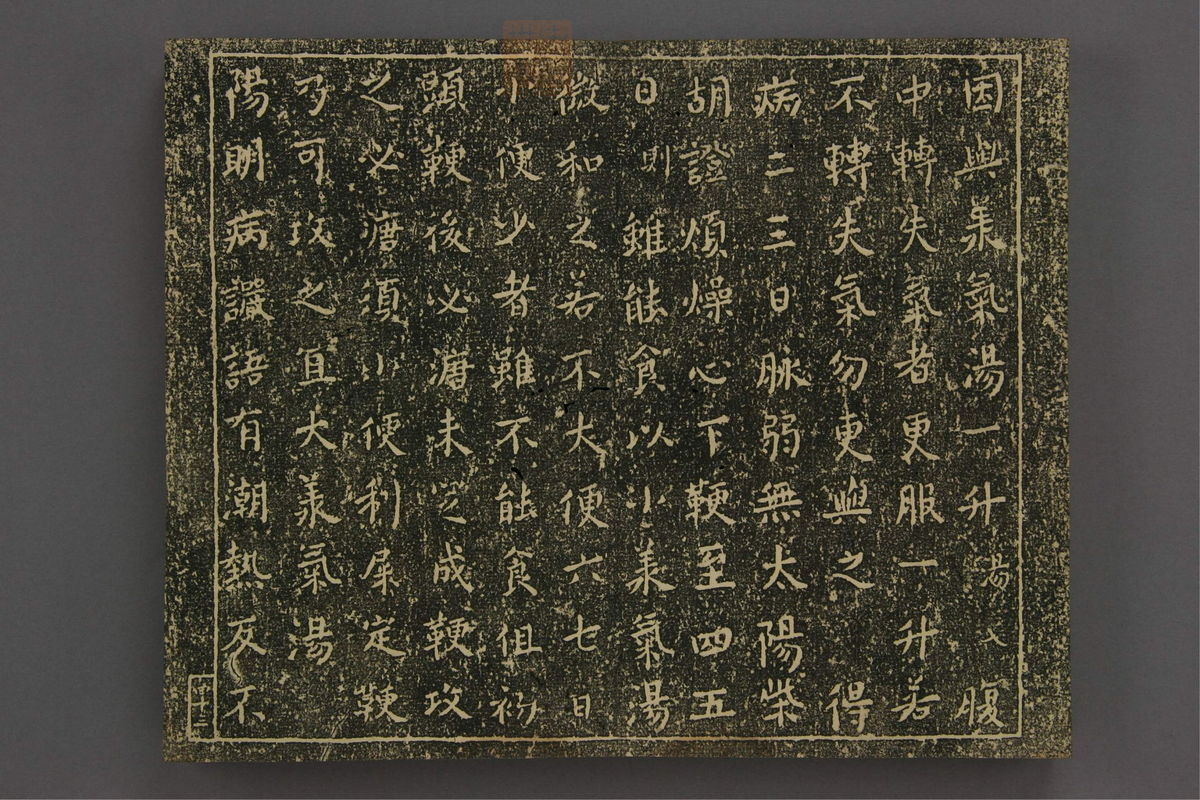 因與承氣湯一升湯入腹
中轉失氣者更服一升若
不轉失氣勿更與之 得
病二三日脉弱無太陽柴
胡證煩燥心下鞕至四五
日則雖能食以小承氣湯
微和之若不大便六七日
小便少者雖不能食但初
頭鞕後必溏未定成鞕攻
之必溏須小便利屎定鞕
乃可攻之宜大承氣湯
陽明病讝語有潮熱反不